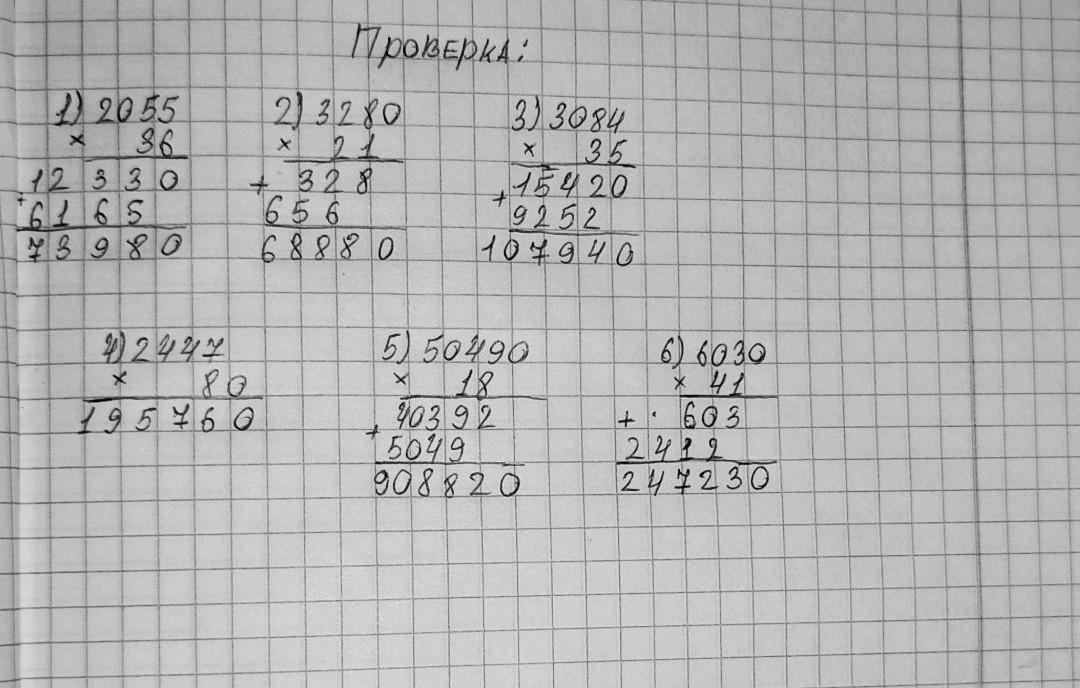 Проверка:
1) 2055
× 36
12330
+
6165
73980
2) 3280
× 21
+ 328
656
68880
3) 3084
× 35
15420
+
9252
107940
4) 2447
× 80
195760
5) 50490
× 18
40392
+
5049
908820
6) 6030
× 41
+ 603
2412
247230